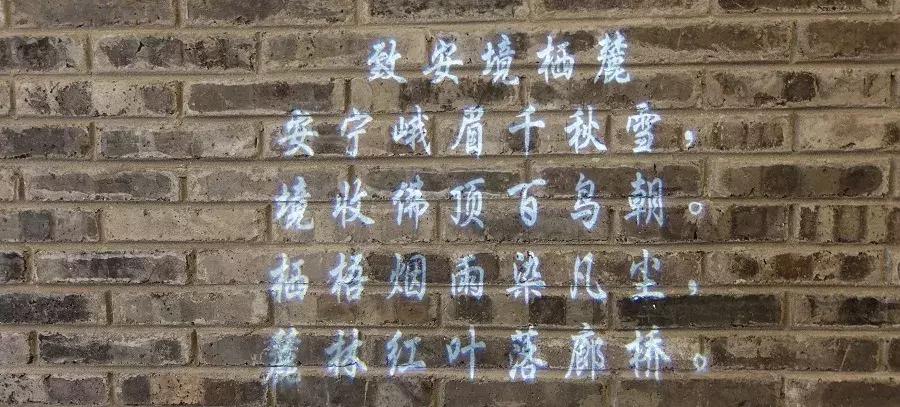 致安境栖麓
安宁峨眉千秋雪，
境收佛顶百鸟朝。
栖梧烟雨染凡尘，
麓林红叶落廊桥。